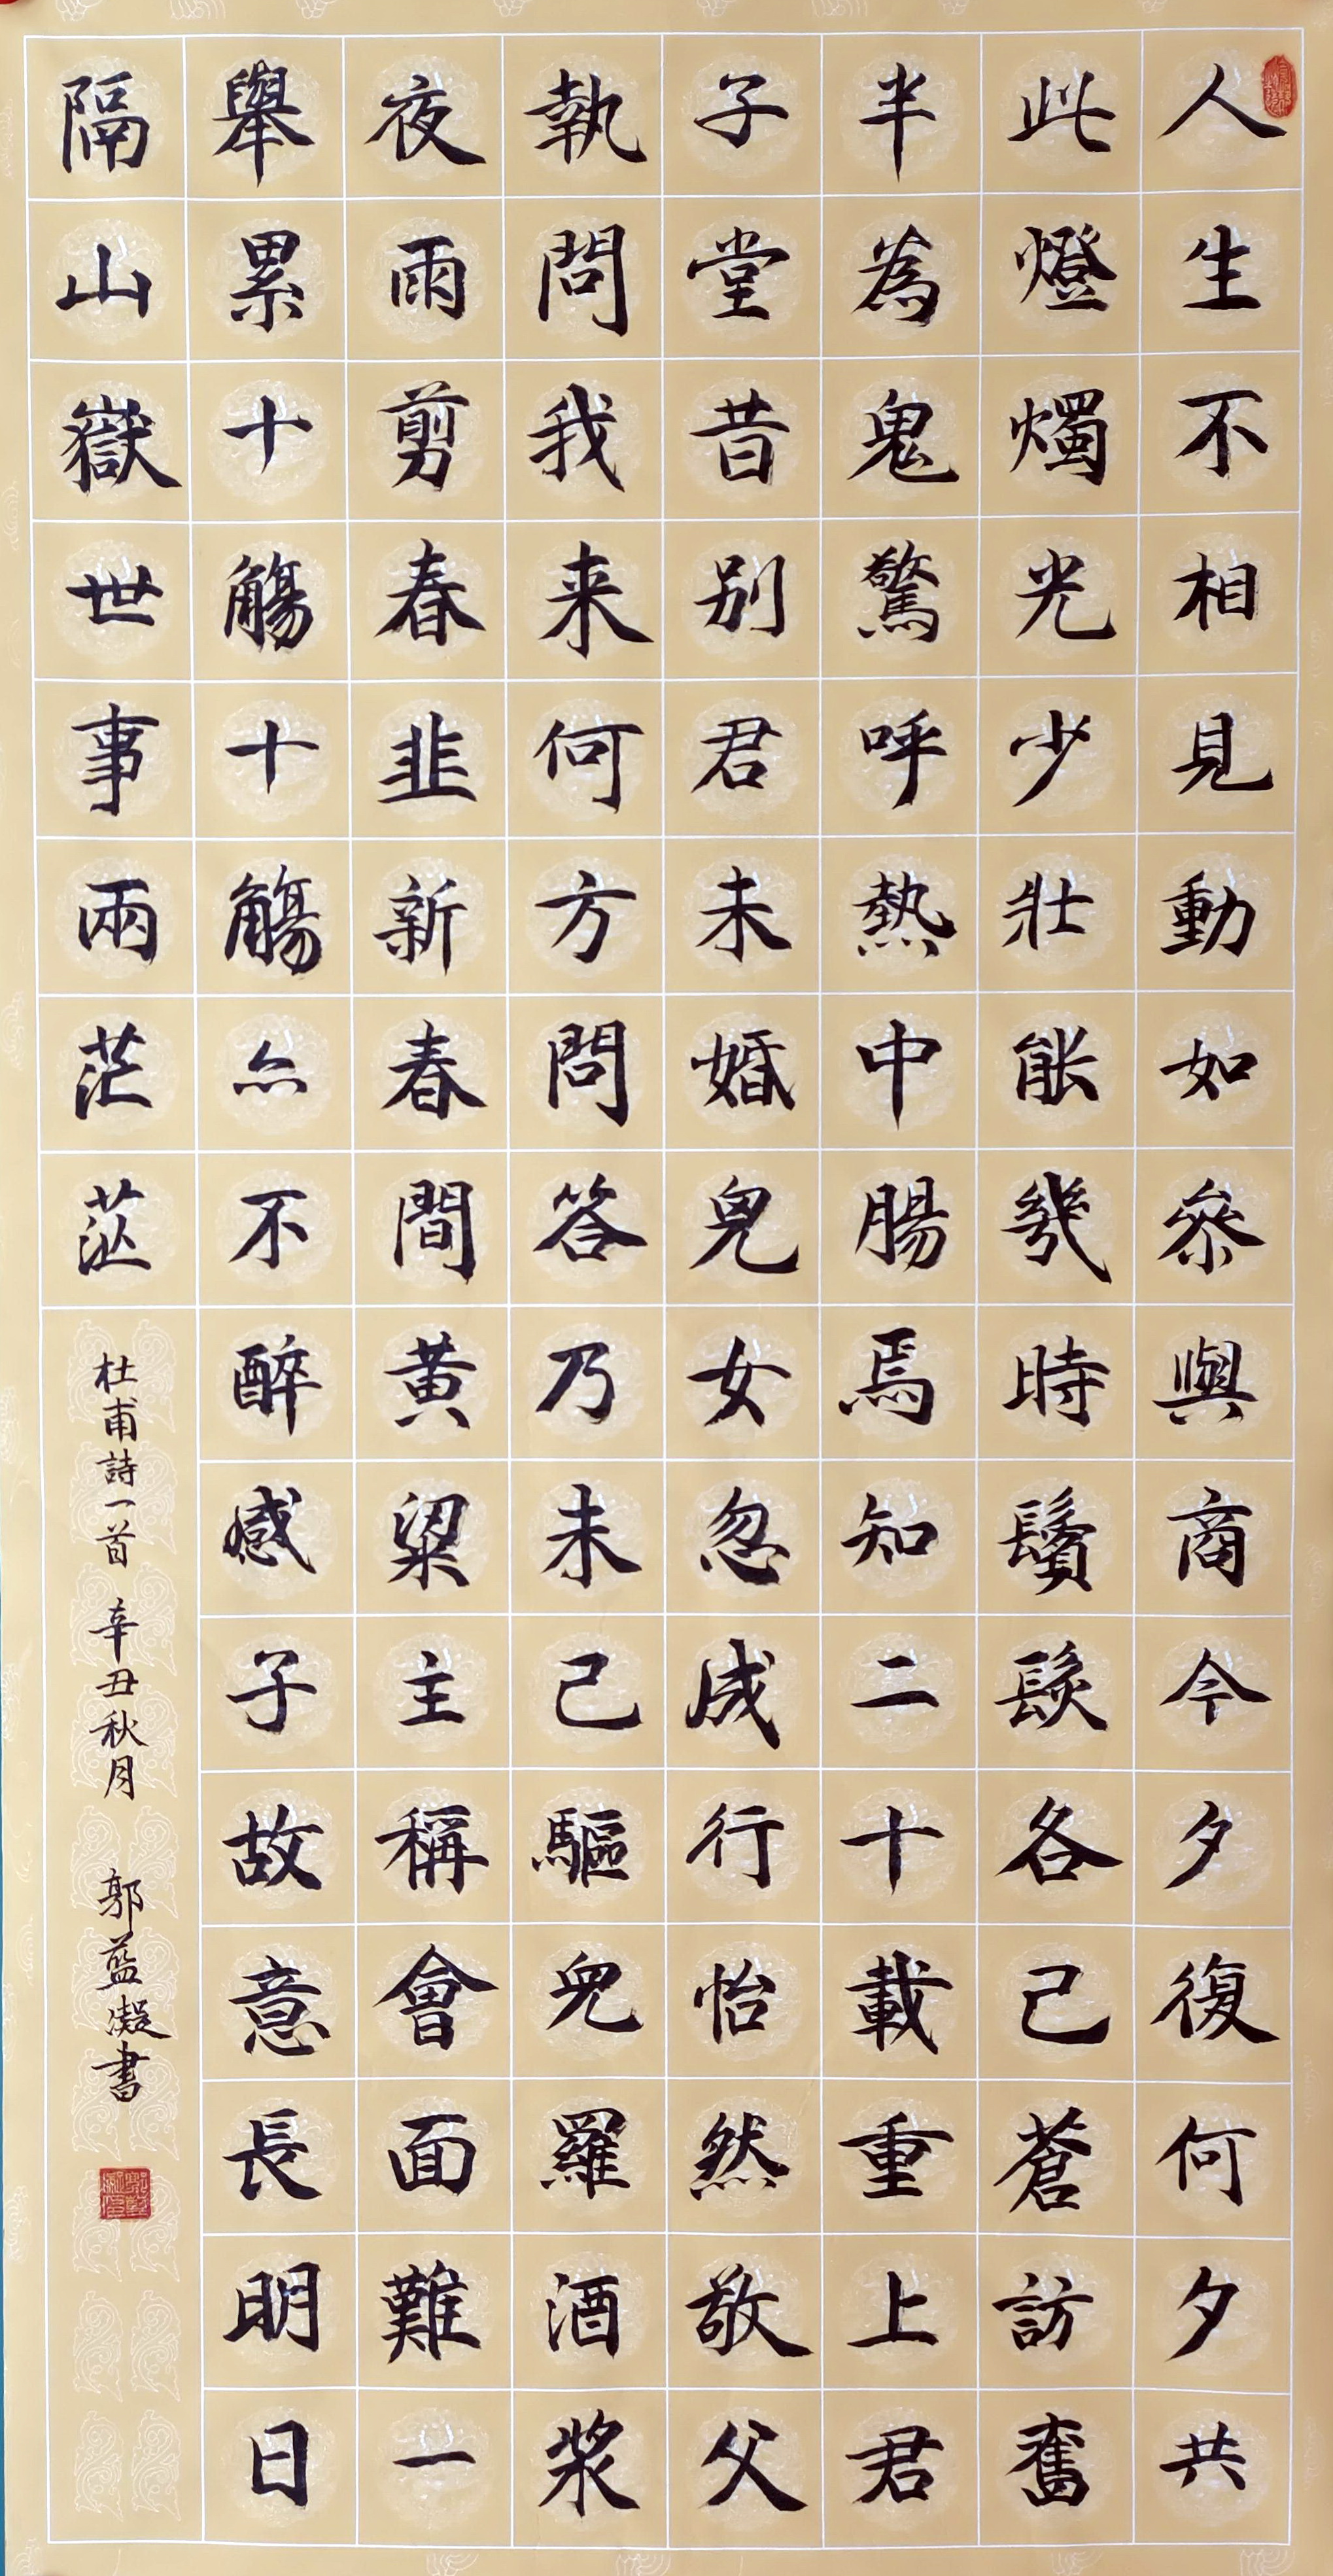 人生不相見動如參與商今夕復何夕共
此燈燭光少壯能幾時鬢髮各已蒼訪舊
半為鬼驚呼熱中腸焉知二十載重上君
子堂昔别君未婚兒女忽成行怡然敬父
執問我来何方問答乃未已驅兒羅酒漿
夜雨剪春韭新春間黃粱主稱會面難一
舉累十觴十觴亦不醉感子故意長明日
隔山嶽世事兩茫茫
杜甫詩一首 辛丑秋月 郭藍凝書